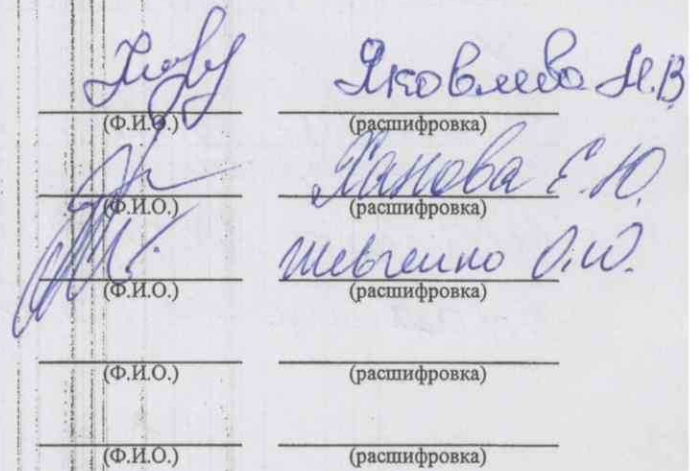 Яковлева Н.В
(Ф.И.О.) (расшифровка)
Ханова Е.Ю.
(Ф.И.О.) (расшифровка)
Шевченко О.Ю.
(Ф.И.О.) (расшифровка)
(Ф.И.О.) (расшифровка)
(Ф.И.О.) (расшифровка)